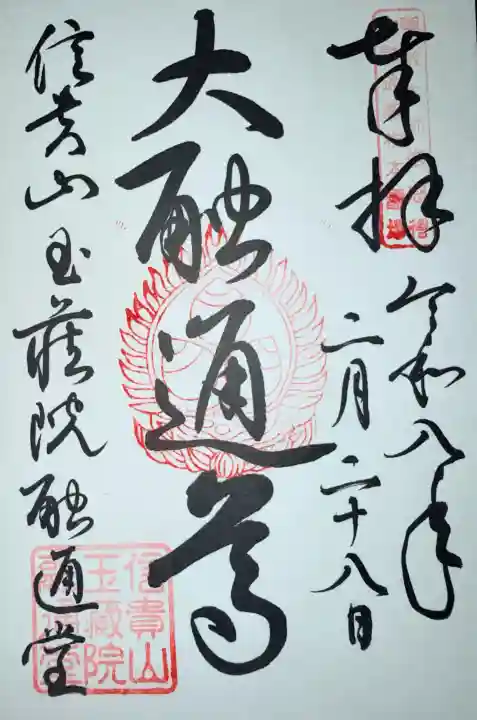 奉拝
令和八年
二月二十八日
大融通尊
信貴山玉蔵院融通堂
信貴山
玉蔵院
融通堂